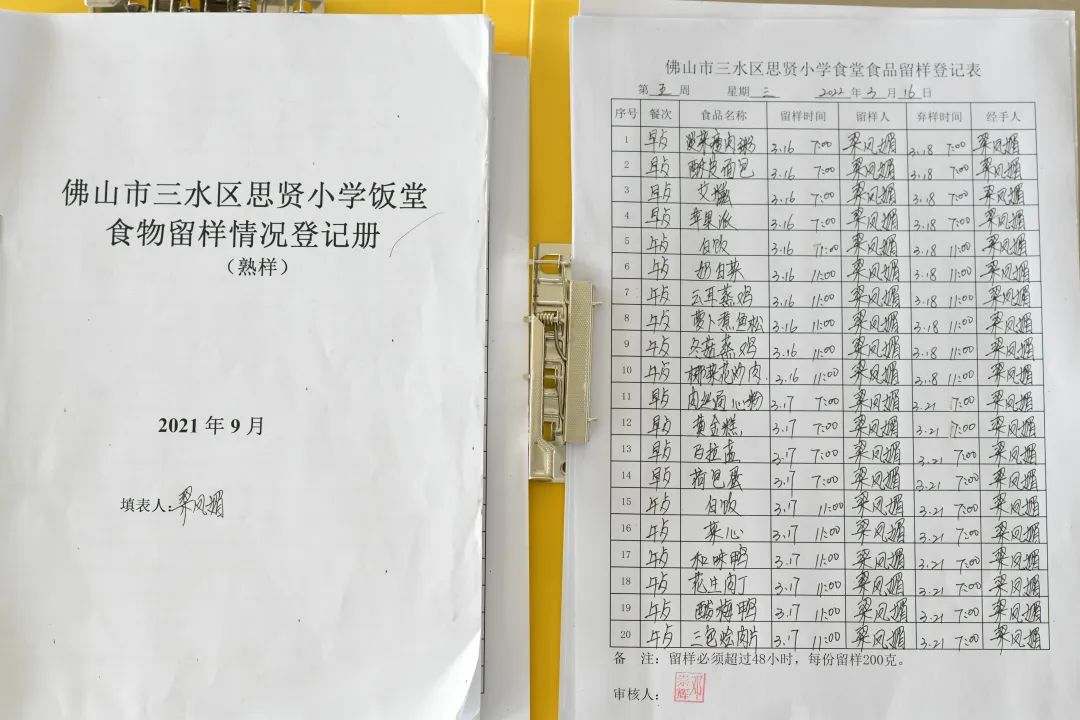 佛山市三水区思贤小学饭堂
食物留样情况登记册
（熟样）
2021 年 9 月
填表人：梁凤媚
佛山市三水区思贤小学食堂食品留样登记表
第 五 周 星期 三 2022 年 3 月 16 日
序号 餐次 食品名称 留样时间 留样人 弃样时间 经手人
1 早点 瘦肉粥 3.16 7:00 梁凤媚 3.18 7:00 梁凤媚
2 早点 酥皮面包 3.16 7:00 梁凤媚 3.18 7:00 梁凤媚
3 早点 3.16 7:00 梁凤媚 3.18 7:00 梁凤媚
4 早点 苹果派 3.16 7:00 梁凤媚 3.18 7:00 梁凤媚
5 午点 白饭 3.16 11:00 梁凤媚 3.18 11:00 梁凤媚
6 午点 奶白菜 3.16 11:00 梁凤媚 3.18 11:00 梁凤媚
7 午点 云耳蒸鸡 3.16 11:00 梁凤媚 3.18 11:00 梁凤媚
8 午点 萝卜煮鱼松 3.16 11:00 梁凤媚 3.18 11:00 梁凤媚
9 午点 冬菇蒸鸡 3.16 11:00 梁凤媚 3.18 11:00 梁凤媚
10 午点 椰菜花炒肉 3.16 11:00 梁凤媚 3.18 11:00 梁凤媚
11 早点 肉丝 3.17 7:00 梁凤媚 3.21 7:00 梁凤媚
12 早点 黄金糕 3.17 7:00 梁凤媚 3.21 7:00 梁凤媚
13 早点 马拉盏 3.17 7:00 梁凤媚 3.21 7:00 梁凤媚
14 早点 荷包蛋 3.17 7:00 梁凤媚 3.21 7:00 梁凤媚
15 午点 白饭 3.17 11:00 梁凤媚 3.21 7:00 梁凤媚
16 午点 菜心 3.17 11:00 梁凤媚 3.21 7:00 梁凤媚
17 午点 和味鸭 3.17 11:00 梁凤媚 3.21 7:00 梁凤媚
18 午点 花生肉丁 3.17 11:00 梁凤媚 3.21 7:00 梁凤媚
19 午点 酸梅鸭 3.17 11:00 梁凤媚 3.21 7:00 梁凤媚
20 午点 三色烩肉片 3.17 11:00 梁凤媚 3.21 7:00 梁凤媚
备 注：留样必须超过48小时，每份留样200克。
审核人：邓崇辉